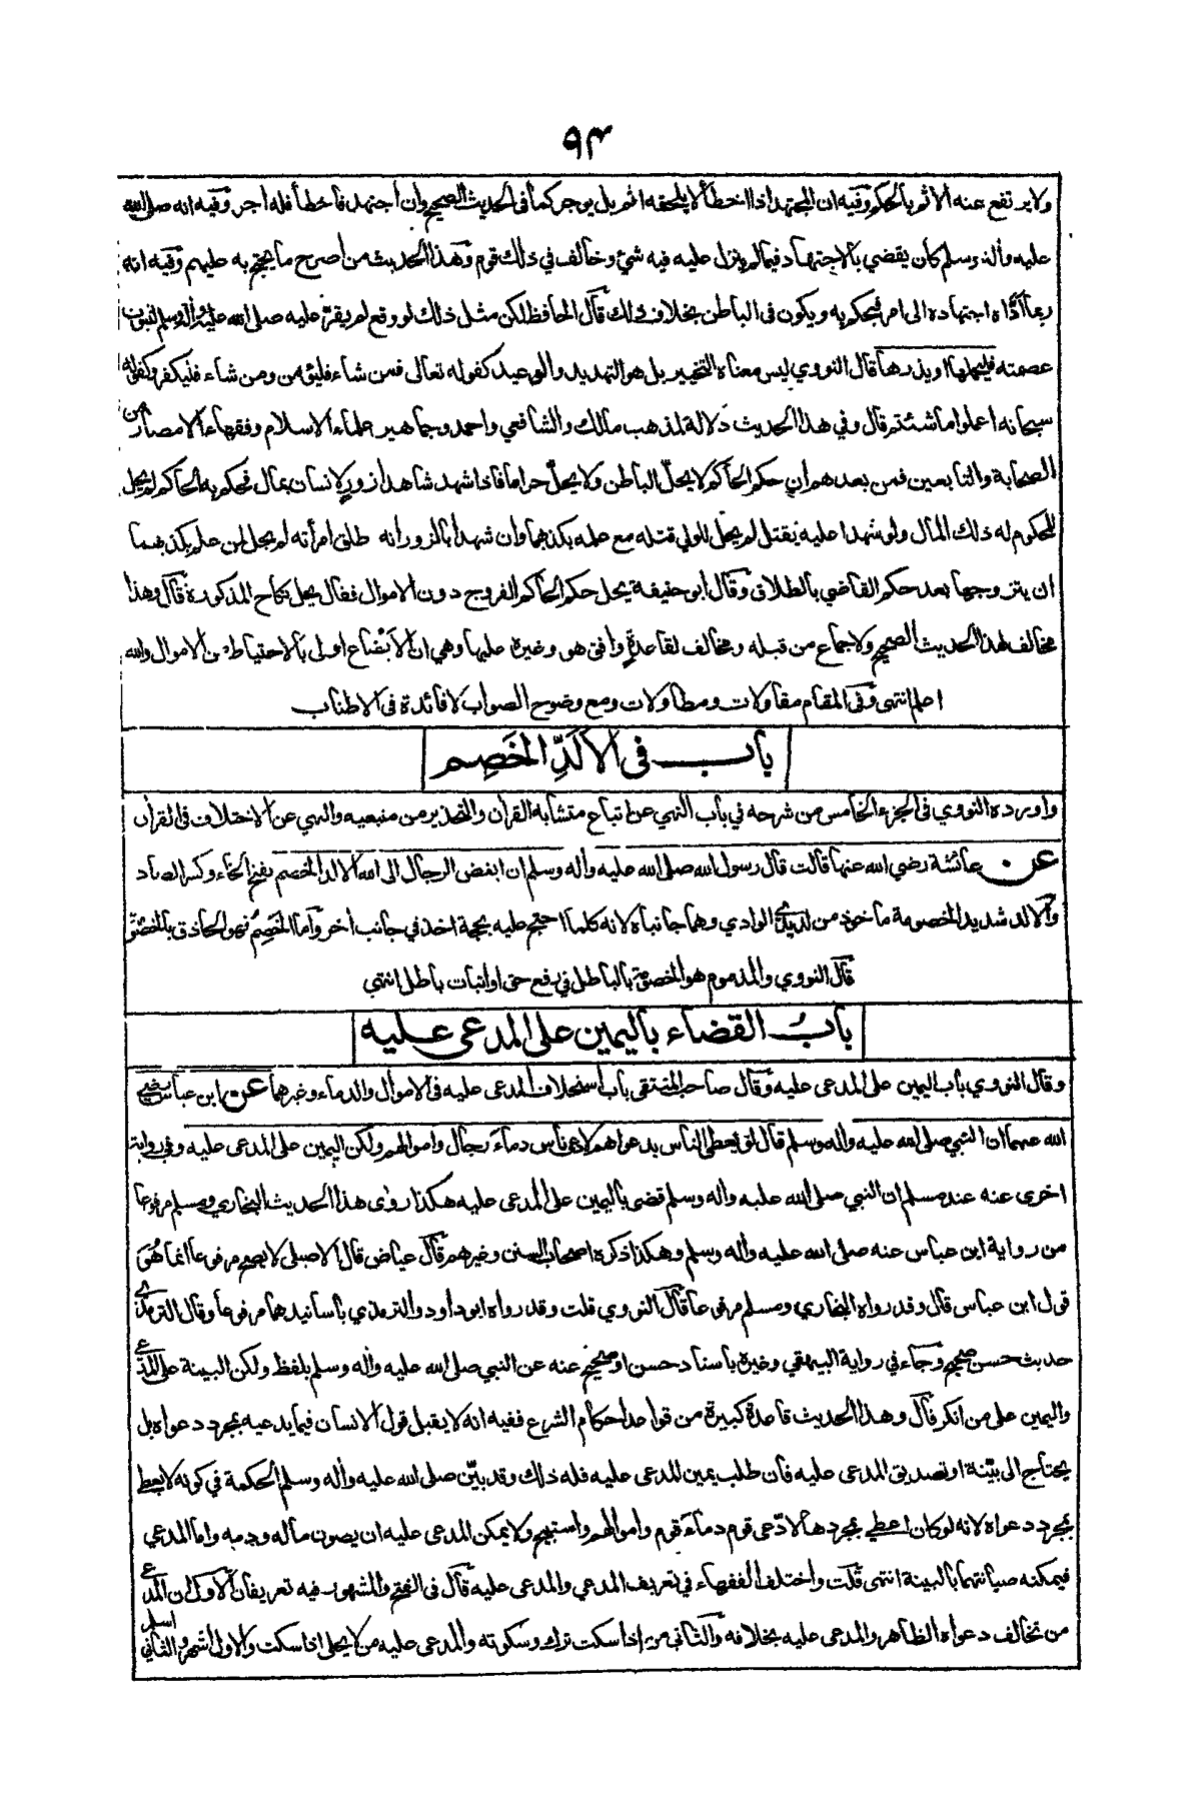 ٩٣
ولا يرتفع عنه الاثم بالحكم وفيه ان المجتهد اذا اخطأ لا يلحقه اثم بل يوجر كما فى الحديث الصحيح وان اجتهد فاخطأ فله اجر وفيه انه صلى الله
عليه وأله وسلم كان يقضي بالاجتهاد فيما لم ينزل عليه فيه شئ وخالف في ذلك قوم وهذا الحديث من أصرح ما يحتج به عليهم وفيه انه
ربما أدّاه اجتهاده الى امر فيحكم به ويكون فى الباطن بخلاف ذلك قال الحافظ لكن مثل ذلك لو وقع لم يقرّ عليه صلى الله عليه وأله وسلم لثبوت
عصمته فليحملها او يذرها قال النووي ليس معناه التخيير بل هو التهديد والوعيد كقوله تعالى فمن شاء فليؤمن ومن شاء فليكفر وكقوله
سبحانه اعملوا ما شئتم قال وفي هذا الحديث دلالة لمذهب مالك والشافعي واحمد وجماهير علماء الاسلام وفقهاء الامصار من
الصحابة والتابعين فمن بعدهم ان حكم الحاكم لا يحلّ الباطن ولا يحلّ حراما فاذا شهد شاهدا زور لانسان بمال فحكم به الحاكم لم يحل
للمحكوم له ذلك المال ولو شهدا عليه بقتل لم يحل للولي قتله مع علمه بكذبهما وان شهدا بالزور انه طلق امرأته لم يحل لمن علم بكذبهما
ان يتزوجها بعد حكم القاضي بالطلاق وقال ابو حنيفة يحل حكم الحاكم الفروج دون الاموال فقال يحل نكاح المذكورة قال وهذا
مخالف لهذا الحديث الصحيح ولاجماع من قبله ومخالف لقاعدة وافق هو وغيره عليها وهي ان الابضاع اولى بالاحتياط من الاموال والله
اعلم انتهى وفى المقام مقاولات ومطاولات ومع وضوح الصواب لا فائدة فى الاطناب
باب فى الالَدِّ الخَصِم
واورده النووي فى الجزء الخامس من شرحه في باب النهي عن اتباع متشابه القرأن والتحذير من متبعيه والنهي عن الاختلاف فى القرأن
عن عائشة رضي الله عنها قالت قال رسول الله صلى الله عليه وأله وسلم ان ابغض الرجال الى الله الالد الخصم بفتح الخاء وكسر الصاد
والالد شديد الخصومة ماخوذ من لديدي الوادي وهما جانباه لانه كلما احتج عليه بحجة اخذ في جانب أخر واما الخَصِمُ فهو الحاذق بالخصومة
قال النووي والمذموم هو الخصومة بالباطل في رفع حق او اثبات باطل انتهى
بابُ القضاء باليمين على المدعى عليه
وقال النووي باب اليمين على المدعى عليه وقال صاحب المنتقى باب استحلاف المدعى عليه فى الاموال والدماء وغيرهما عن ابن عباس رضي
الله عنهما ان النبي صلى الله عليه وأله وسلم قال لو يعطى الناس بدعواهم لادعى ناس دماء رجال واموالهم ولكن اليمين على المدعى عليه وفي رواية
اخرى عنه عند مسلم ان النبي صلى الله عليه وأله وسلم قضى باليمين على المدعى عليه هكذا روى هذا الحديث البخاري ومسلم مرفوعا
من رواية ابن عباس عنه صلى الله عليه وأله وسلم وهكذا ذكره اصحاب السنن وغيرهم قال عياض قال الاصيلى لا يصح مرفوعا انما هُوَ
قول ابن عباس قال وقد رواه البخاري ومسلم مرفوعا قال النووي قلت وقد رواه ابو داود والترمذي باسانيدهما مرفوعا وقال الترمذي
حديث حسن صحيح وجاء في رواية البيهقي وغيره باسناد حسن او صحيح عنه عن النبي صلى الله عليه وأله وسلم بلفظ ولكن البينة على المدعي
واليمين على من انكر قال وهذا الحديث قاعدة كبيرة من قواعد احكام الشرع ففيه انه لا يقبل قول الانسان فيما يدعيه بمجرد دعواه بل
يحتاج الى بيّنة او تصديق المدعى عليه فان طلب يمين المدعى عليه فله ذلك وقد بيّن صلى الله عليه وأله وسلم الحكمة في كونه لا يعطى
بمجرد دعواه لانه لو كان اعطي بمجردها لادّعى قوم دماء قوم واموالهم واستبيح ولا يمكن المدعى عليه ان يصون ماله ودمه واما المدعي
فيمكنه صيانتهما بالبينة انتهى قلت واختلف الفقهاء في تعريف المدعي والمدعى عليه قال فى الفتح والمشهور فيه تعريفان الاول ان المدعي
من تخالف دعواه الظاهر والمدعى عليه بخلافه والثانى من اذا سكت ترك وسكوته والمدعى عليه من لا يخلى اذا سكت والاول اشهر والثاني اسلم